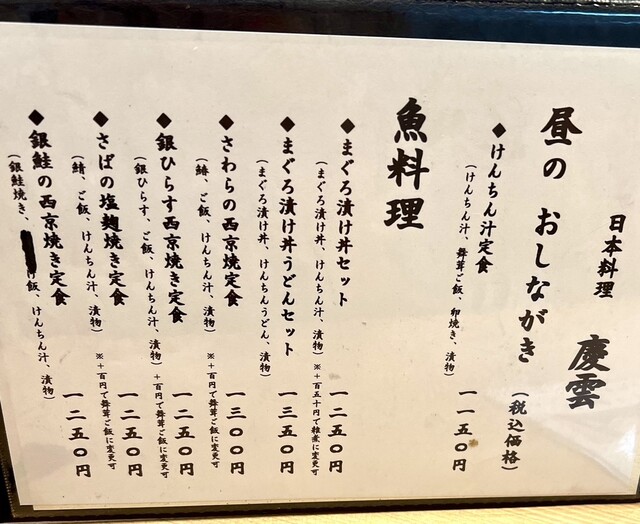 日本料理 慶雲
昼の おしながき (税込価格)
◆けんちん汁定食 一一五〇円
(けんちん汁、舞茸ご飯、卵焼き、漬物)
魚料理
◆まぐろ漬け丼セット 一二五〇円
(まぐろ漬け丼、けんちん汁、漬物) ※+百五十円で雑煮に変更可
◆まぐろ漬け丼うどんセット 一三五〇円
(まぐろ漬け丼、けんちんうどん、漬物)
◆さわらの西京焼定食 一三〇〇円
(鰆、ご飯、けんちん汁、漬物) ※+百円で舞茸ご飯に変更可
◆銀ひらす西京焼き定食 一二五〇円
(銀ひらす、ご飯、けんちん汁、漬物) ※+百円で舞茸ご飯に変更可
◆さばの塩麹焼き定食 一二五〇円
(鯖、ご飯、けんちん汁、漬物) ※+百円で舞茸ご飯に変更可
◆銀鮭の西京焼き定食 一二五〇円
(銀鮭焼き、 飯、けんちん汁、漬物)